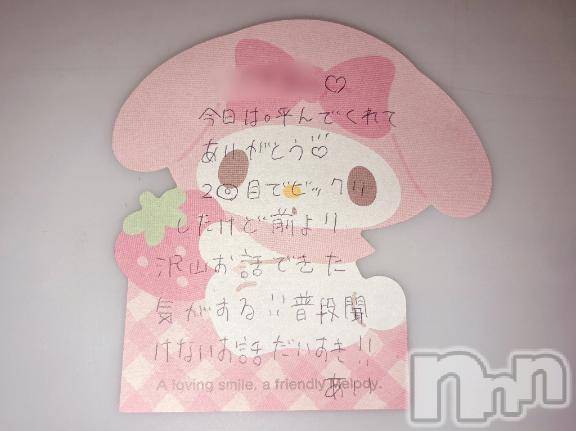 ♡
今日は呼んでくれて
ありがとう♡
2回目でビックリ
したけど前より
沢山お話できた
気がする!!普段聞
けないお話だいすき!!
A loving smile, a friendly Melody.
あい
nnn